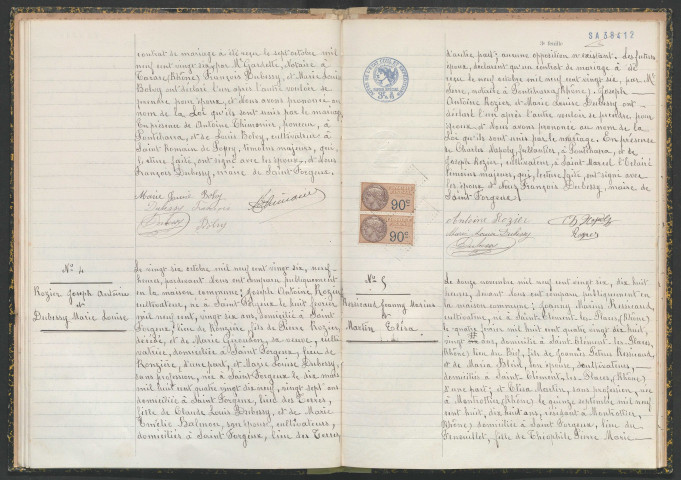 contrat de mariage a été reçu le sept octobre mil
neuf cent vingt six par Me Gardette, Notaire à
Tarare (Rhône) François Dubessy, et Marie Louise
Boley ont déclaré l'un après l'autre vouloir se
prendre pour époux, et Nous avons prononcé au
nom de la Loi qu'ils sont unis par le mariage.
En présence de Antoine Chimonier,
Pontcharra, et de Louis Boley, cultivateur à
Saint Romain de Popey, témoins majeurs, qui,
lecture faite, ont signé avec les époux, et Nous
François Dubessy, maire de Saint Forgeux.
Marie Louise Boley
Dubessy François
Dubessy Boley
No 4
Rozier Joseph Antoine
et
Dubessy Marie Louise
Le vingt six octobre mil neuf cent vingt six, neuf
heures, pardevant Nous ont comparu publiquement
en la maison commune: Joseph Antoine Rozier
cultivateur, né à Saint Forgeux le huit février
mil neuf cent, vingt six ans, domicilié à Saint
Forgeux, lieu de Ronzière, fils de Pierre Rozier
décédé, et de Marie sa veuve, culti-
vatrice, domiciliée à Saint Forgeux, lieu de
Ronzière, d'une part, et Marie Louise Dubessy,
sans profession, née à Saint Forgeux le dix mai
mil huit cent quatre vingt dix neuf, vingt sept ans
domiciliée à Saint Forgeux, lieu des Terres,
fille de Claude Louis Dubessy, et de Marie
Emélie son épouse, cultivateurs,
domiciliés à Saint Forgeux, lieu des Terres,
SA38412
3e feuille
d'autre part; aucune opposition n'existant. Les futurs
époux, déclarent qu'un contrat de mariage a été
reçu le neuf octobre mil neuf cent vingt six, par Me
notaire à Pontcharra (Rhône). Joseph
Antoine Rozier et Marie Louise Dubessy ont
déclaré l'un après l'autre vouloir se prendre pour
époux, et Nous avons prononcé au nom de la
Loi qu'ils sont unis par le mariage. En présence
de Charles à Pontcharra, et de
Joseph Rozier, cultivateur, à Saint Marcel l'Eclairé
témoins majeurs, qui, lecture faite, ont signé avec
les époux et Nous François Dubessy, maire de
Saint Forgeux.
Antoine Rozier
Marie Louise Dubessy
Dubessy
Rozier
90c
90c
No 5
Jeanny Marius
et
Martin Eliza
Le douze novembre mil neuf cent vingt six, dix huit
heures, devant Nous ont comparu publiquement en
la maison commune: Jeanny Marius
né à Saint Clément les Places (Rhône)
le quatre février mil huit cent quatre vingt dix huit,
vingt huit ans, domicilié à Saint Clément les Places,
(Rhône) lieu du fils de
et de Maria son épouse, cultivateurs,
domiciliés à Saint Clément les Places (Rhône)
d'une part, et Eliza Martin, sans profession, née
à Montrottier (Rhône) le quinze septembre mil neuf
cent huit, dix huit ans, résidant à Montrottier,
(Rhône) domiciliée à Saint Forgeux, lieu du
fille de Théophile Pierre Marie